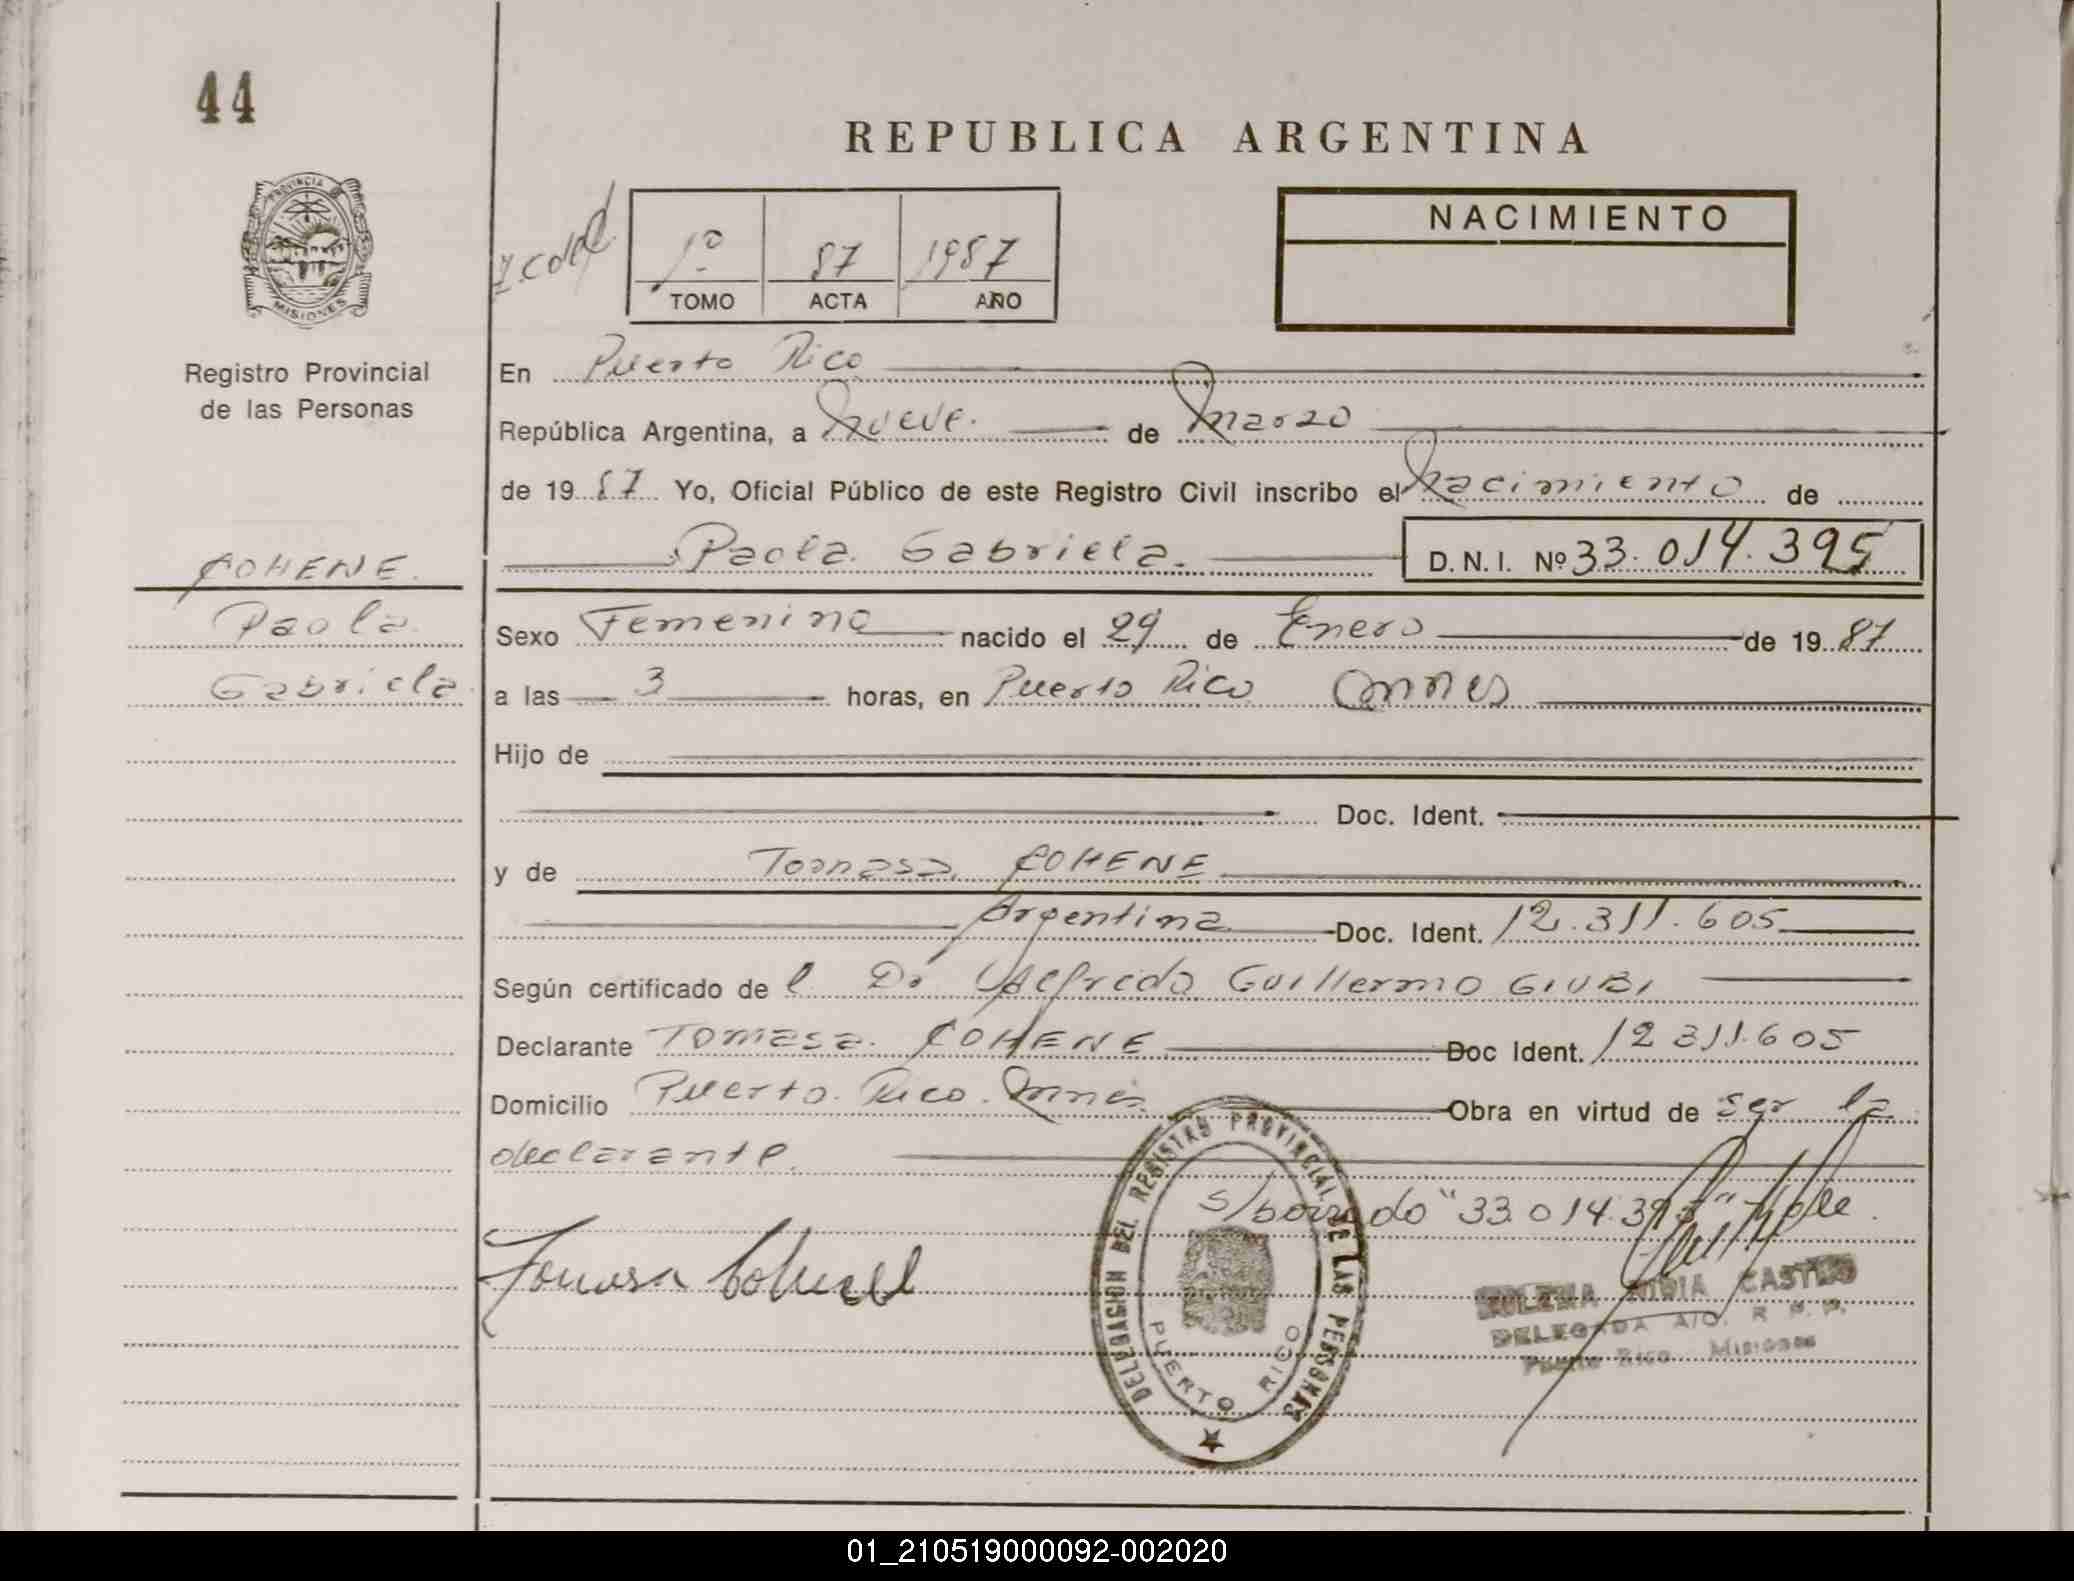 44
REPUBLICA ARGENTINA
PROVINCIA
MISIONES
Registro Provincial
de las Personas
1º 87 1987
TOMO ACTA AÑO
NACIMIENTO
En Puerto Rico
República Argentina, a Nueve de Marzo
de 1987 Yo, Oficial Público de este Registro Civil inscribo el Nacimiento de
Paola Gabriela. D.N.I. Nº 33.014.395
COHENE.
Paola
Gabriela
Sexo Femenino nacido el 29 de Enero de 1987
a las 3 horas, en Puerto Rico Mnes
Hijo de
Doc. Ident.
y de Tomasa COHENE
Argentina Doc. Ident. 12.311.605
Según certificado del Dr Alfredo Guillermo GIUBI
Declarante Tomasa COHENE Doc Ident. 12 311.605
Domicilio Puerto Rico. Mnes Obra en virtud de ser la
declarante.
s/borrado "33.014.395" Vale.
Tomasa Cohene
DELEGACION DEL REGISTRO PROVINCIAL DE LAS PERSONAS
PUERTO RICO
NIDIA CASTRO
DELEGADA A/C. R. P. P.
Puerto Rico Misiones
01_210519000092-002020